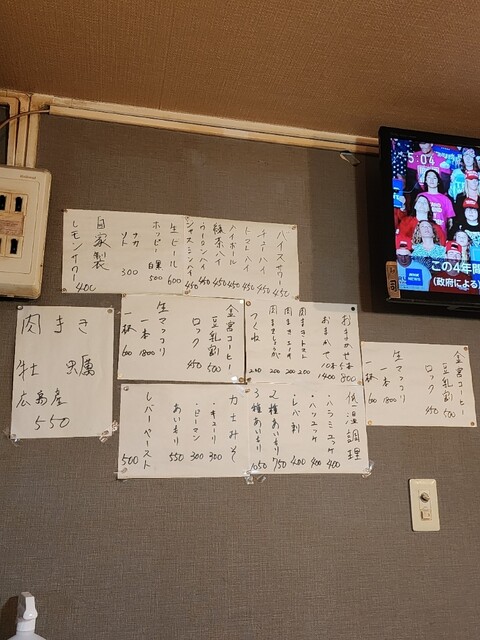 ハイスサワー 450
チューハイ 450
トマトハイ 450
ハイボール 450
緑茶ハイ 450
ウーロンハイ 450
ジャスミンハイ 450
生ビール 600
ホッピー 白黒 500
ナカ 300
ソト
自家製
レモンサワー 400
おまかせ5本 800
おまかせ10本 1400
肉まきトマト 200
肉まき 200
肉まきしょうが 200
つくね 200
金宮コーヒー
豆乳割 500
ロック 450
生マッコリ
一本 1800
一杯 600
肉まき
牡蠣
広島産
550
金宮コーヒー
豆乳割 500
ロック 450
生マッコリ
一本 1800
一杯 600
低温調理
・ハラミユッケ 400
・ハツユッケ 400
・レバ刺 400
2種あいもり 750
3種あいもり 1050
力士みそ
・キューリ 300
・ピーマン 300
あいもり 550
レバーペースト 500
5:04
この4年間
(政府による)
NEWS